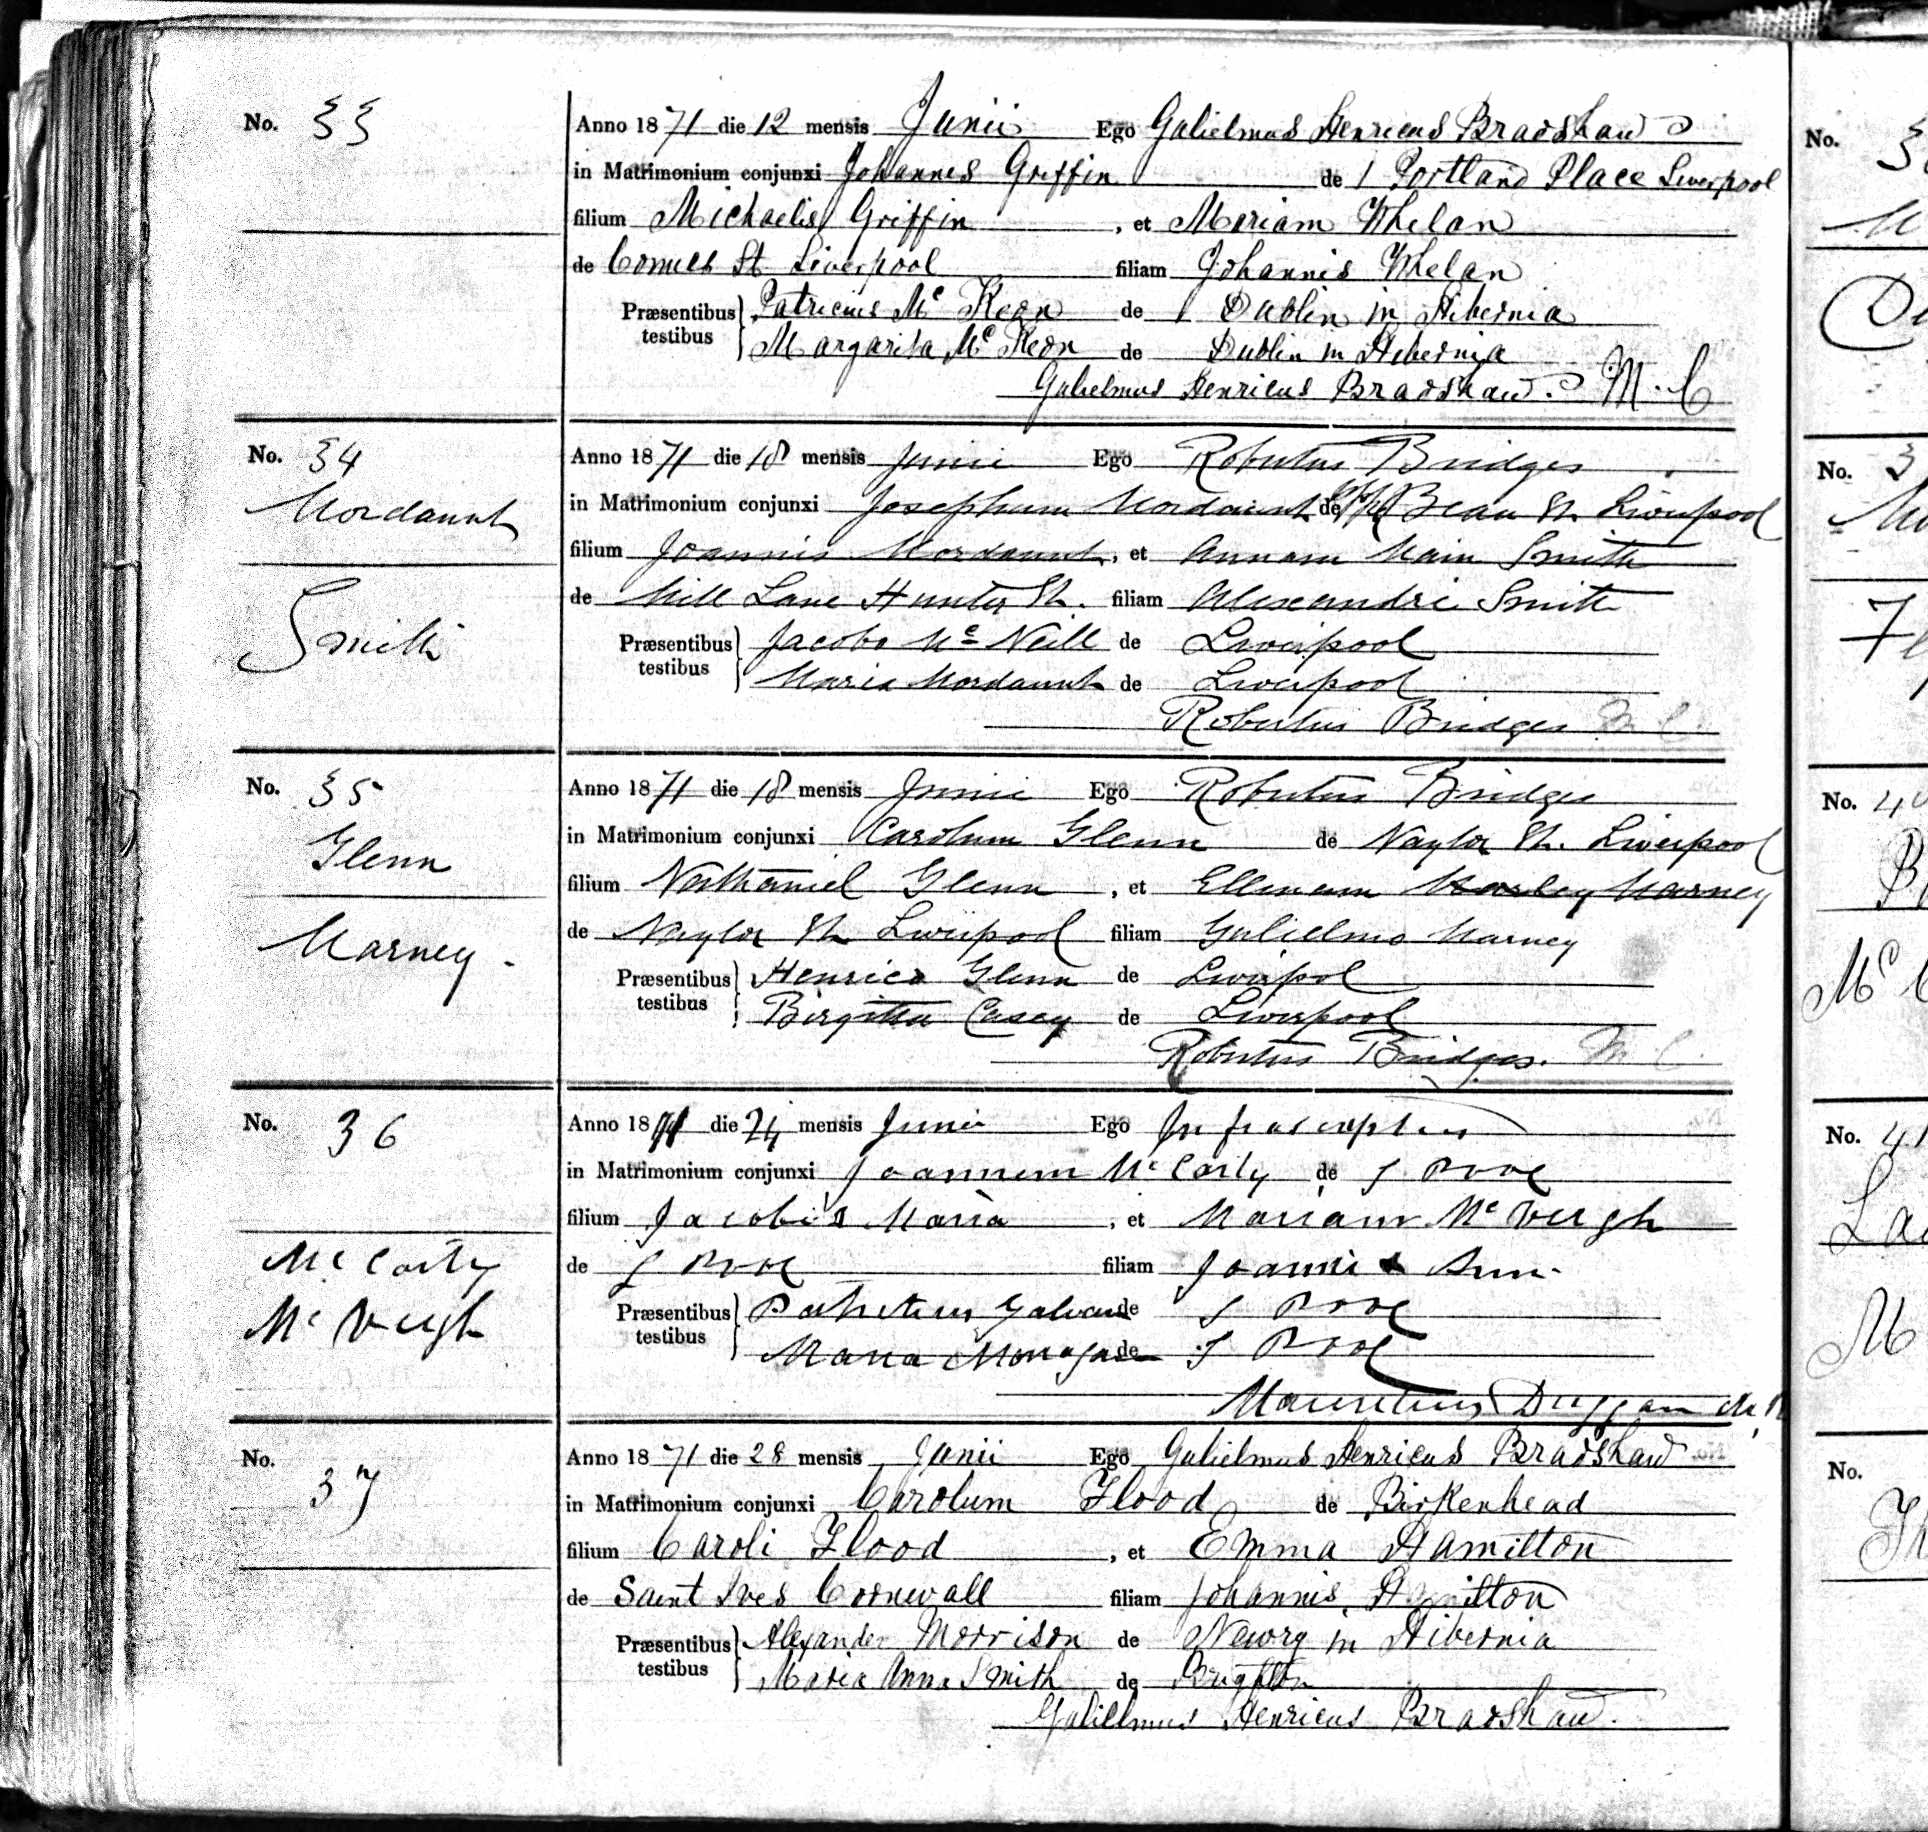 No. 33
Anno 1871 die 12 mensis Junii Ego Gulielmus Henricus Bradshaw
in Matrimonium conjunxi Johannes Griffin de 1 Portland Place Liverpool
filium Michaelis Griffin, et Mariam Whelan
de Comus St Liverpool filiam Johannis Whelan
Præsentibus testibus Patricius Mc Keon de Dublin in Hibernia
Margarita Mc Keon de Dublin in Hibernia
Gulielmus Henricus Bradshaw. M.C
No. 34
Mordaunt
Smith
Anno 1871 die 18 mensis Junii Ego Robertus Bridges
in Matrimonium conjunxi Josephum Mordaunt de Beau St. Liverpool
filium Joannis Mordaunt, et Annam Smith
de Mill Lane Hunter St. filiam Alexandri Smith
Præsentibus testibus Jacobo Mc Neill de Liverpool
Maria Mordaunt de Liverpool
Robertus Bridges M.C.
No. 35
Glenn
Marney.
Anno 1871 die 18 mensis Junii Ego Robertus Bridges
in Matrimonium conjunxi Carolum Glenn de Naylor St. Liverpool
filium Nathaniel Glenn, et Ellenam Marney
de Naylor St. Liverpool filiam Gulielmo Marney
Præsentibus testibus Henrico Glenn de Liverpol
Birgitta Casey de Liverpool
Robertus Bridges. M.C.
No. 36
Mc Carty
Mc Veigh
Anno 1871 die 24 mensis Junii Ego Infrascriptus
in Matrimonium conjunxi Joannem Mc Carty de L Pool
filium Jacobi & Maria, et Mariam Mc Veigh
de L Pool filiam Joanni & Ann
Præsentibus testibus Galvan de L Pool
Maria Monagan de L Pool
Mauritius Duggan
No. 37
Anno 1871 die 28 mensis Junii Ego Gulielmus Henricus Bradshaw
in Matrimonium conjunxi Carolum Flood de Birkenhead
filium Caroli Flood, et Emma Hamilton
de Saint Ives Cornwall filiam Johannis Hamilton
Præsentibus testibus Alexander Morrison de Newry in Hibernia
Maria Anna Smith de Brighton
Gulielmus Henricus Bradshaw.
No.
No. 3
No. 4
No. 41
No.